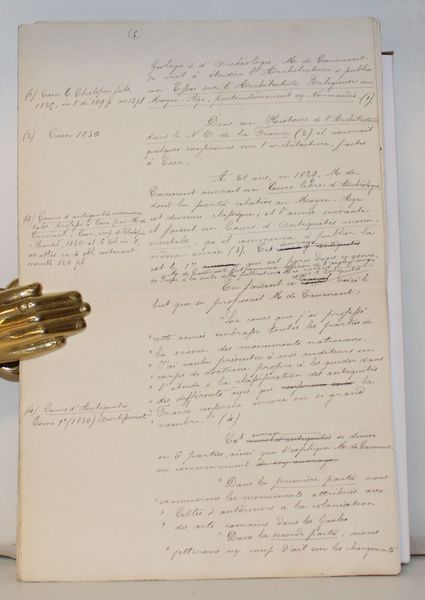 (5
Géologie & d'Archéologie, M. de Caumont
se mit à étudier l'Architecture & publia
un Essai sur l'Architecture Religieuse au
Moyen-Age, particulièrement en Normandie (1)
(1) Caen, C. Chalopin fils,
1825, in 8 de 109 p.
Dans son Histoire de l'Architecture
dans le N.O. de la France (2) il résumait
quelques conférences sur l'architecture, faites
à Caen.
(2) Caen 1830.
A 28 ans, en 1829, M. de
Caumont ouvrait un Cours libre d'Archéologie,
dont la partie relative au Moyen Age
est devenue classique; et l'année suivante
il faisait un Cours d'Antiquités monu-
mentales, qu'il commença à publier la
même année (3). Cet ouvrage
est le 1er qui ait paru dans ce genre
(3) Cours d'antiquités monumen-
tales professé à Caen par M. de
Caumont. Caen, imp. de Chalopin
& Hardel, 1830-41, 6 vol. in 8,
av. atlas in 4 obl. contenant
ensemble 120 pl.
En faisant ce voici le
but que se proposait M. de Caumont:
"Le cours que j'ai professé
"cette année embrasse toutes les parties de
"la science des monuments nationaux.
"J'ai voulu présenter à mes auditeurs un
"corps de doctrine propre à les guider dans
"l'étude & la classification des antiquités
"des différents âges, que la
"France renferme encore en si grand
"nombre." (4)
(4) Cours d'Antiquités
Tome 1er (1830)
Cet se divise
en 6 parties, ainsi que l'explique M. de Caumont,
au commencement
"Dans la première partie nous
"examinerons les monuments attribués aux
"Celtes & antérieurs à la colonisation
"des arts romains dans les Gaules
"Dans la seconde partie, nous
"jetterons un coup d'œil sur les changements